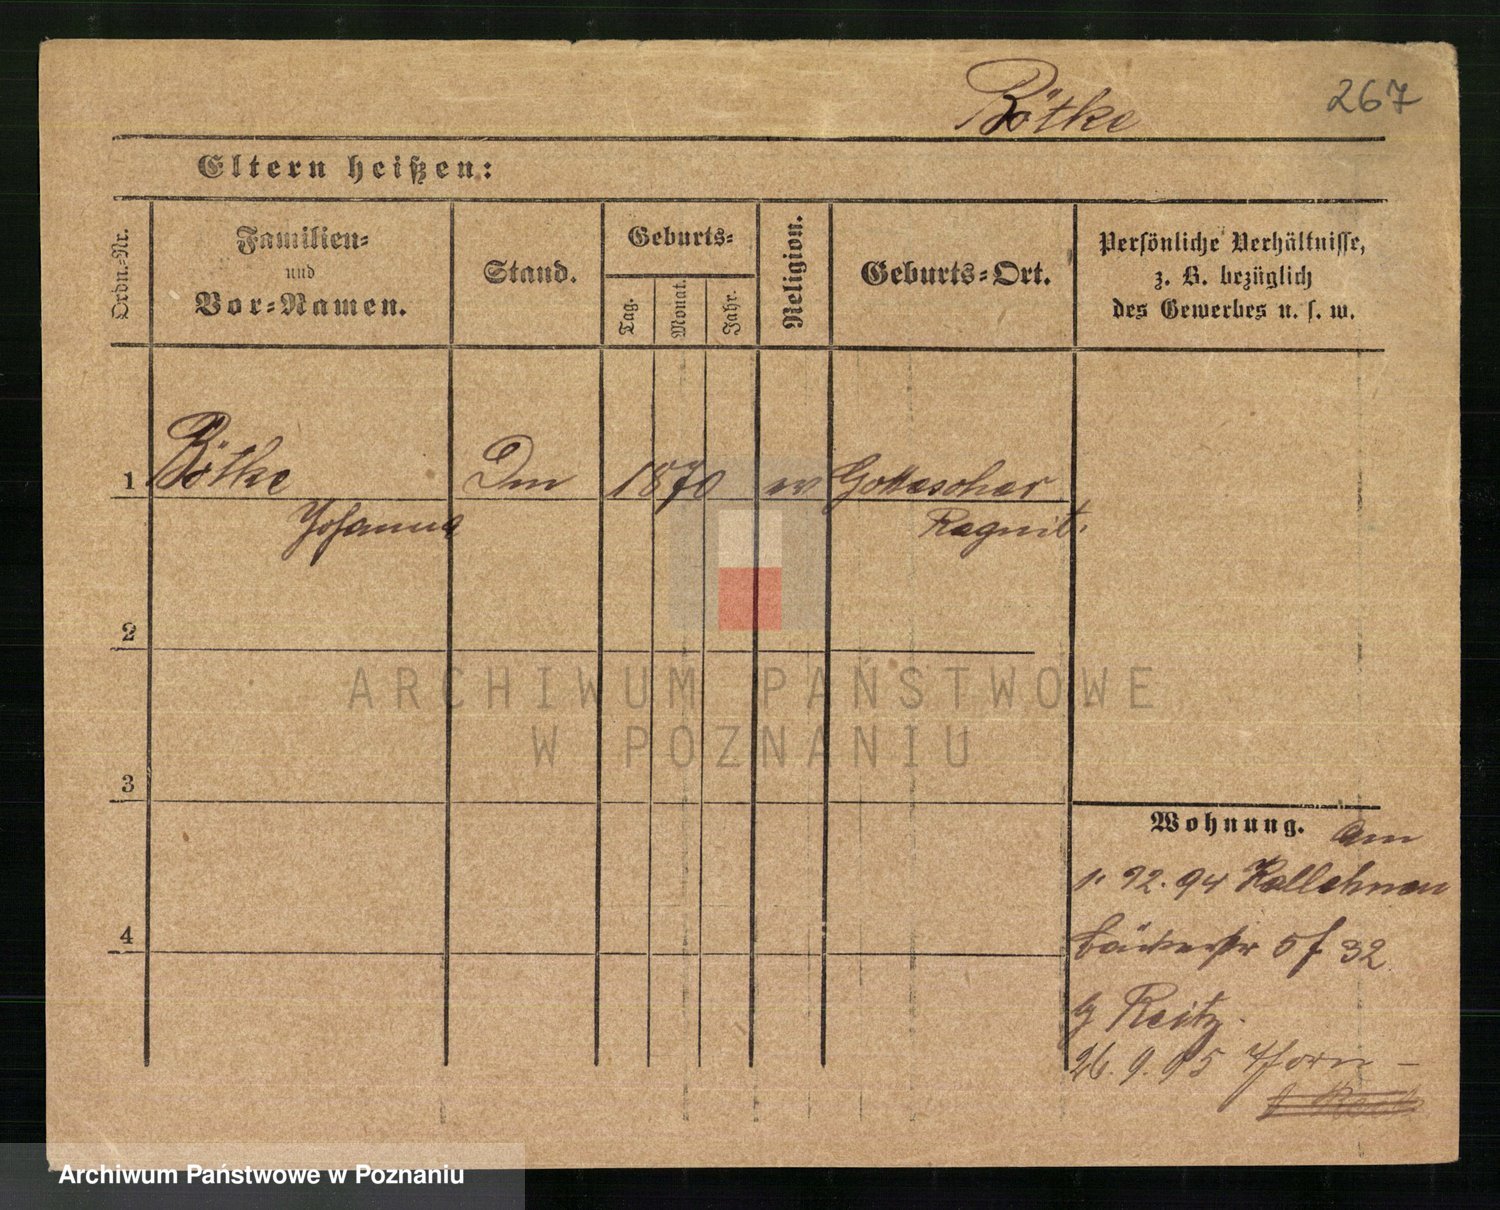 Bötke 267
Eltern heißen:
Ordn.-Nr.
Familien-
und
Vor-Namen.
Stand.
Geburts-
Tag.
Monat.
Jahr.
Religion.
Geburts-Ort.
Persönliche Verhältnisse,
z. B. bezüglich
des Gewerbes u. s. w.
1 Bötke 1870 ev
Johanna Ragnit
2
ARCHIWUM PAŃSTWOWE
W POZNANIU
3
Wohnung. Am
4
Bäckerstr 5 f 32
Reitz.
26.9.95 Thorn –
Archiwum Państwowe w Poznaniu